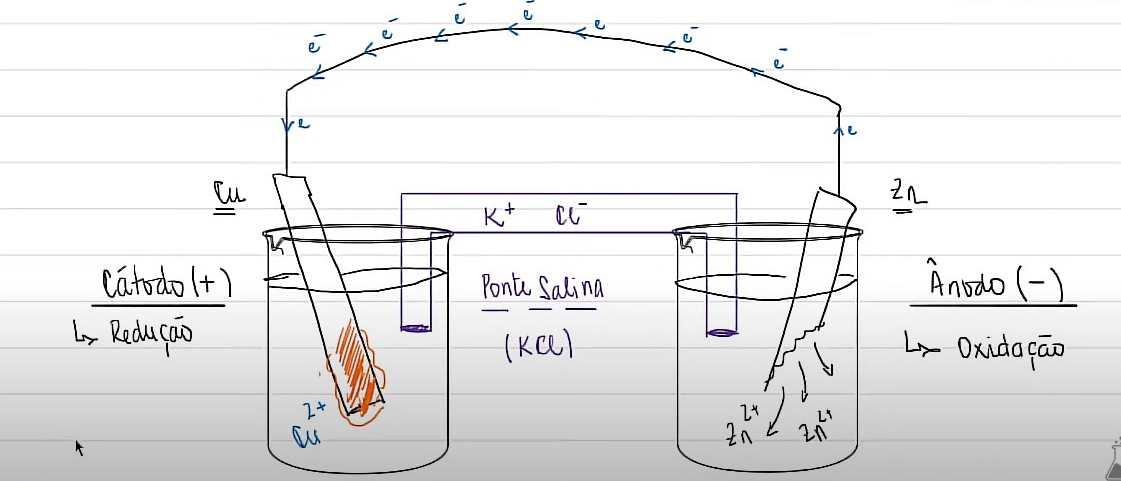 e⁻ e⁻ e⁻ e⁻ e e⁻ e⁻
e e
Cu
Zn
K⁺ Cl⁻
Cátodo (+)
↳ Redução
Ponte Salina
(KCl)
Ânodo (-)
↳ Oxidação
Cu²⁺
Zn²⁺ Zn²⁺